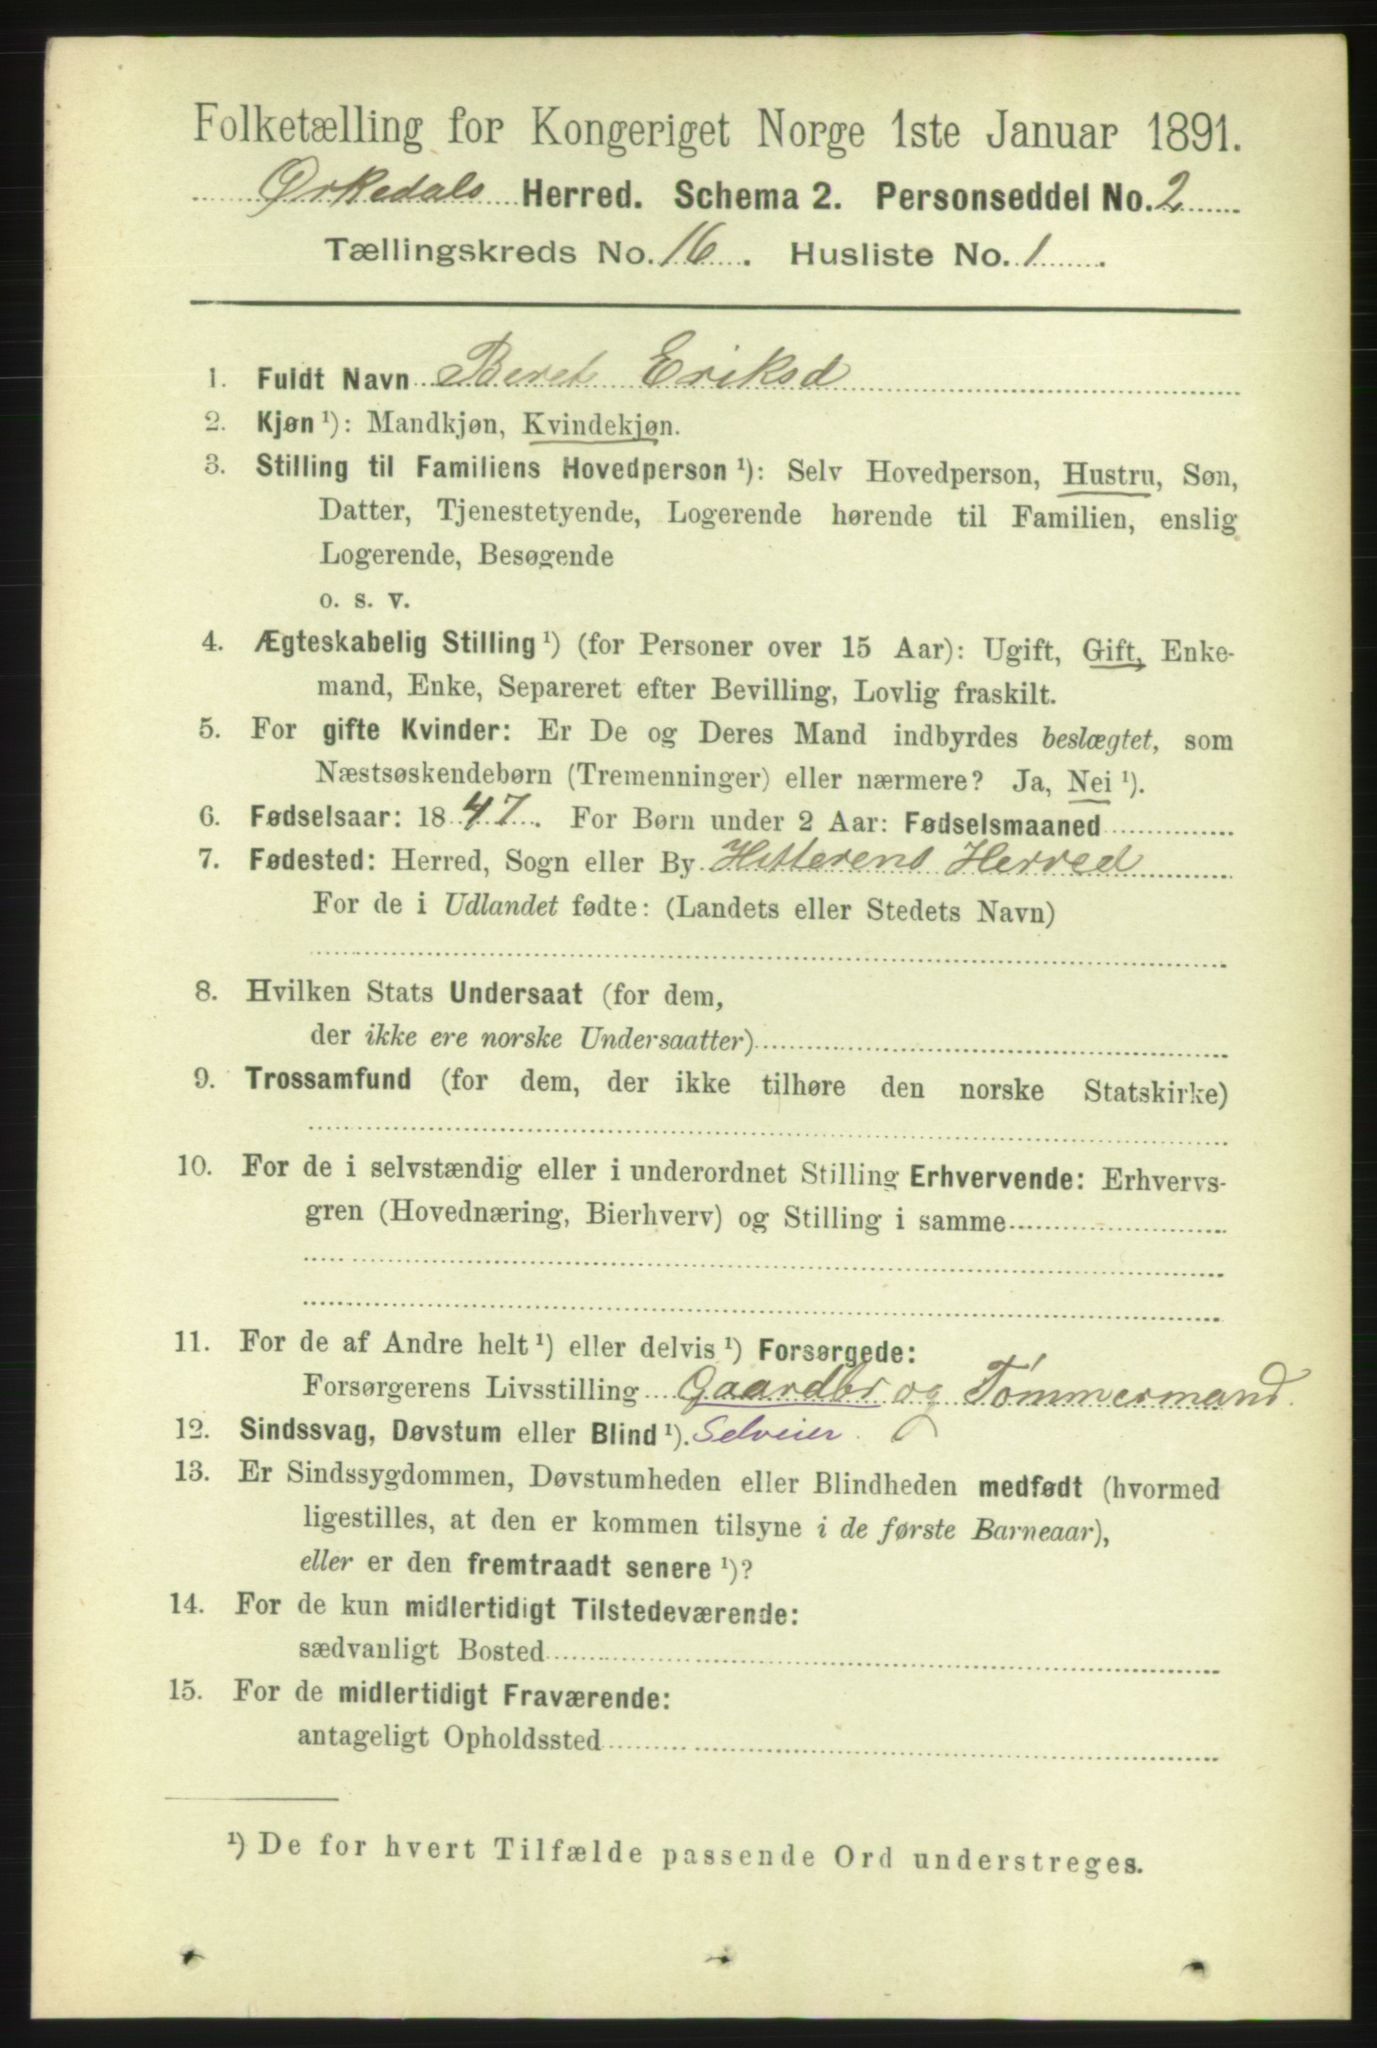 Folketælling for Kongeriget Norge 1ste Januar 1891.
Ørkedals Herred. Schema 2. Personseddel No. 2
Tællingskreds No. 16. Husliste No. 1.
1. Fuldt Navn Beret Eriksd
2. Kjøn ¹): Mandkjøn, Kvindekjøn.
3. Stilling til Familiens Hovedperson ¹): Selv Hovedperson, Hustru, Søn,
Datter, Tjenestetyende, Logerende hørende til Familien, enslig
Logerende, Besøgende
o. s. v.
4. Ægteskabelig Stilling ¹) (for Personer over 15 Aar): Ugift, Gift, Enke-
mand, Enke, Separeret efter Bevilling, Lovlig fraskilt.
5. For gifte Kvinder: Er De og Deres Mand indbyrdes beslægtet, som
Næstsøskendebørn (Tremenninger) eller nærmere? Ja, Nei ¹).
6. Fødselsaar: 1847. For Børn under 2 Aar: Fødselsmaaned
7. Fødested: Herred, Sogn eller By Hitterens Herred
For de i Udlandet fødte: (Landets eller Stedets Navn)
8. Hvilken Stats Undersaat (for dem,
der ikke ere norske Undersaatter)
9. Trossamfund (for dem, der ikke tilhøre den norske Statskirke)
10. For de i selvstændig eller i underordnet Stilling Erhvervende: Erhvervs-
gren (Hovednæring, Bierhverv) og Stilling i samme
11. For de af Andre helt ¹) eller delvis ¹) Forsørgede:
Forsørgerens Livsstilling Gaardbr og Tómmermand.
12. Sindssvag, Døvstum eller Blind ¹). Selveier.
13. Er Sindssygdommen, Døvstumheden eller Blindheden medfødt (hvormed
ligestilles, at den er kommen tilsyne i de første Barneaar),
eller er den fremtraadt senere ¹)?
14. For de kun midlertidigt Tilstedeværende:
sædvanligt Bosted
15. For de midlertidigt Fraværende:
antageligt Opholdssted
¹) De for hvert Tilfælde passende Ord understreges.